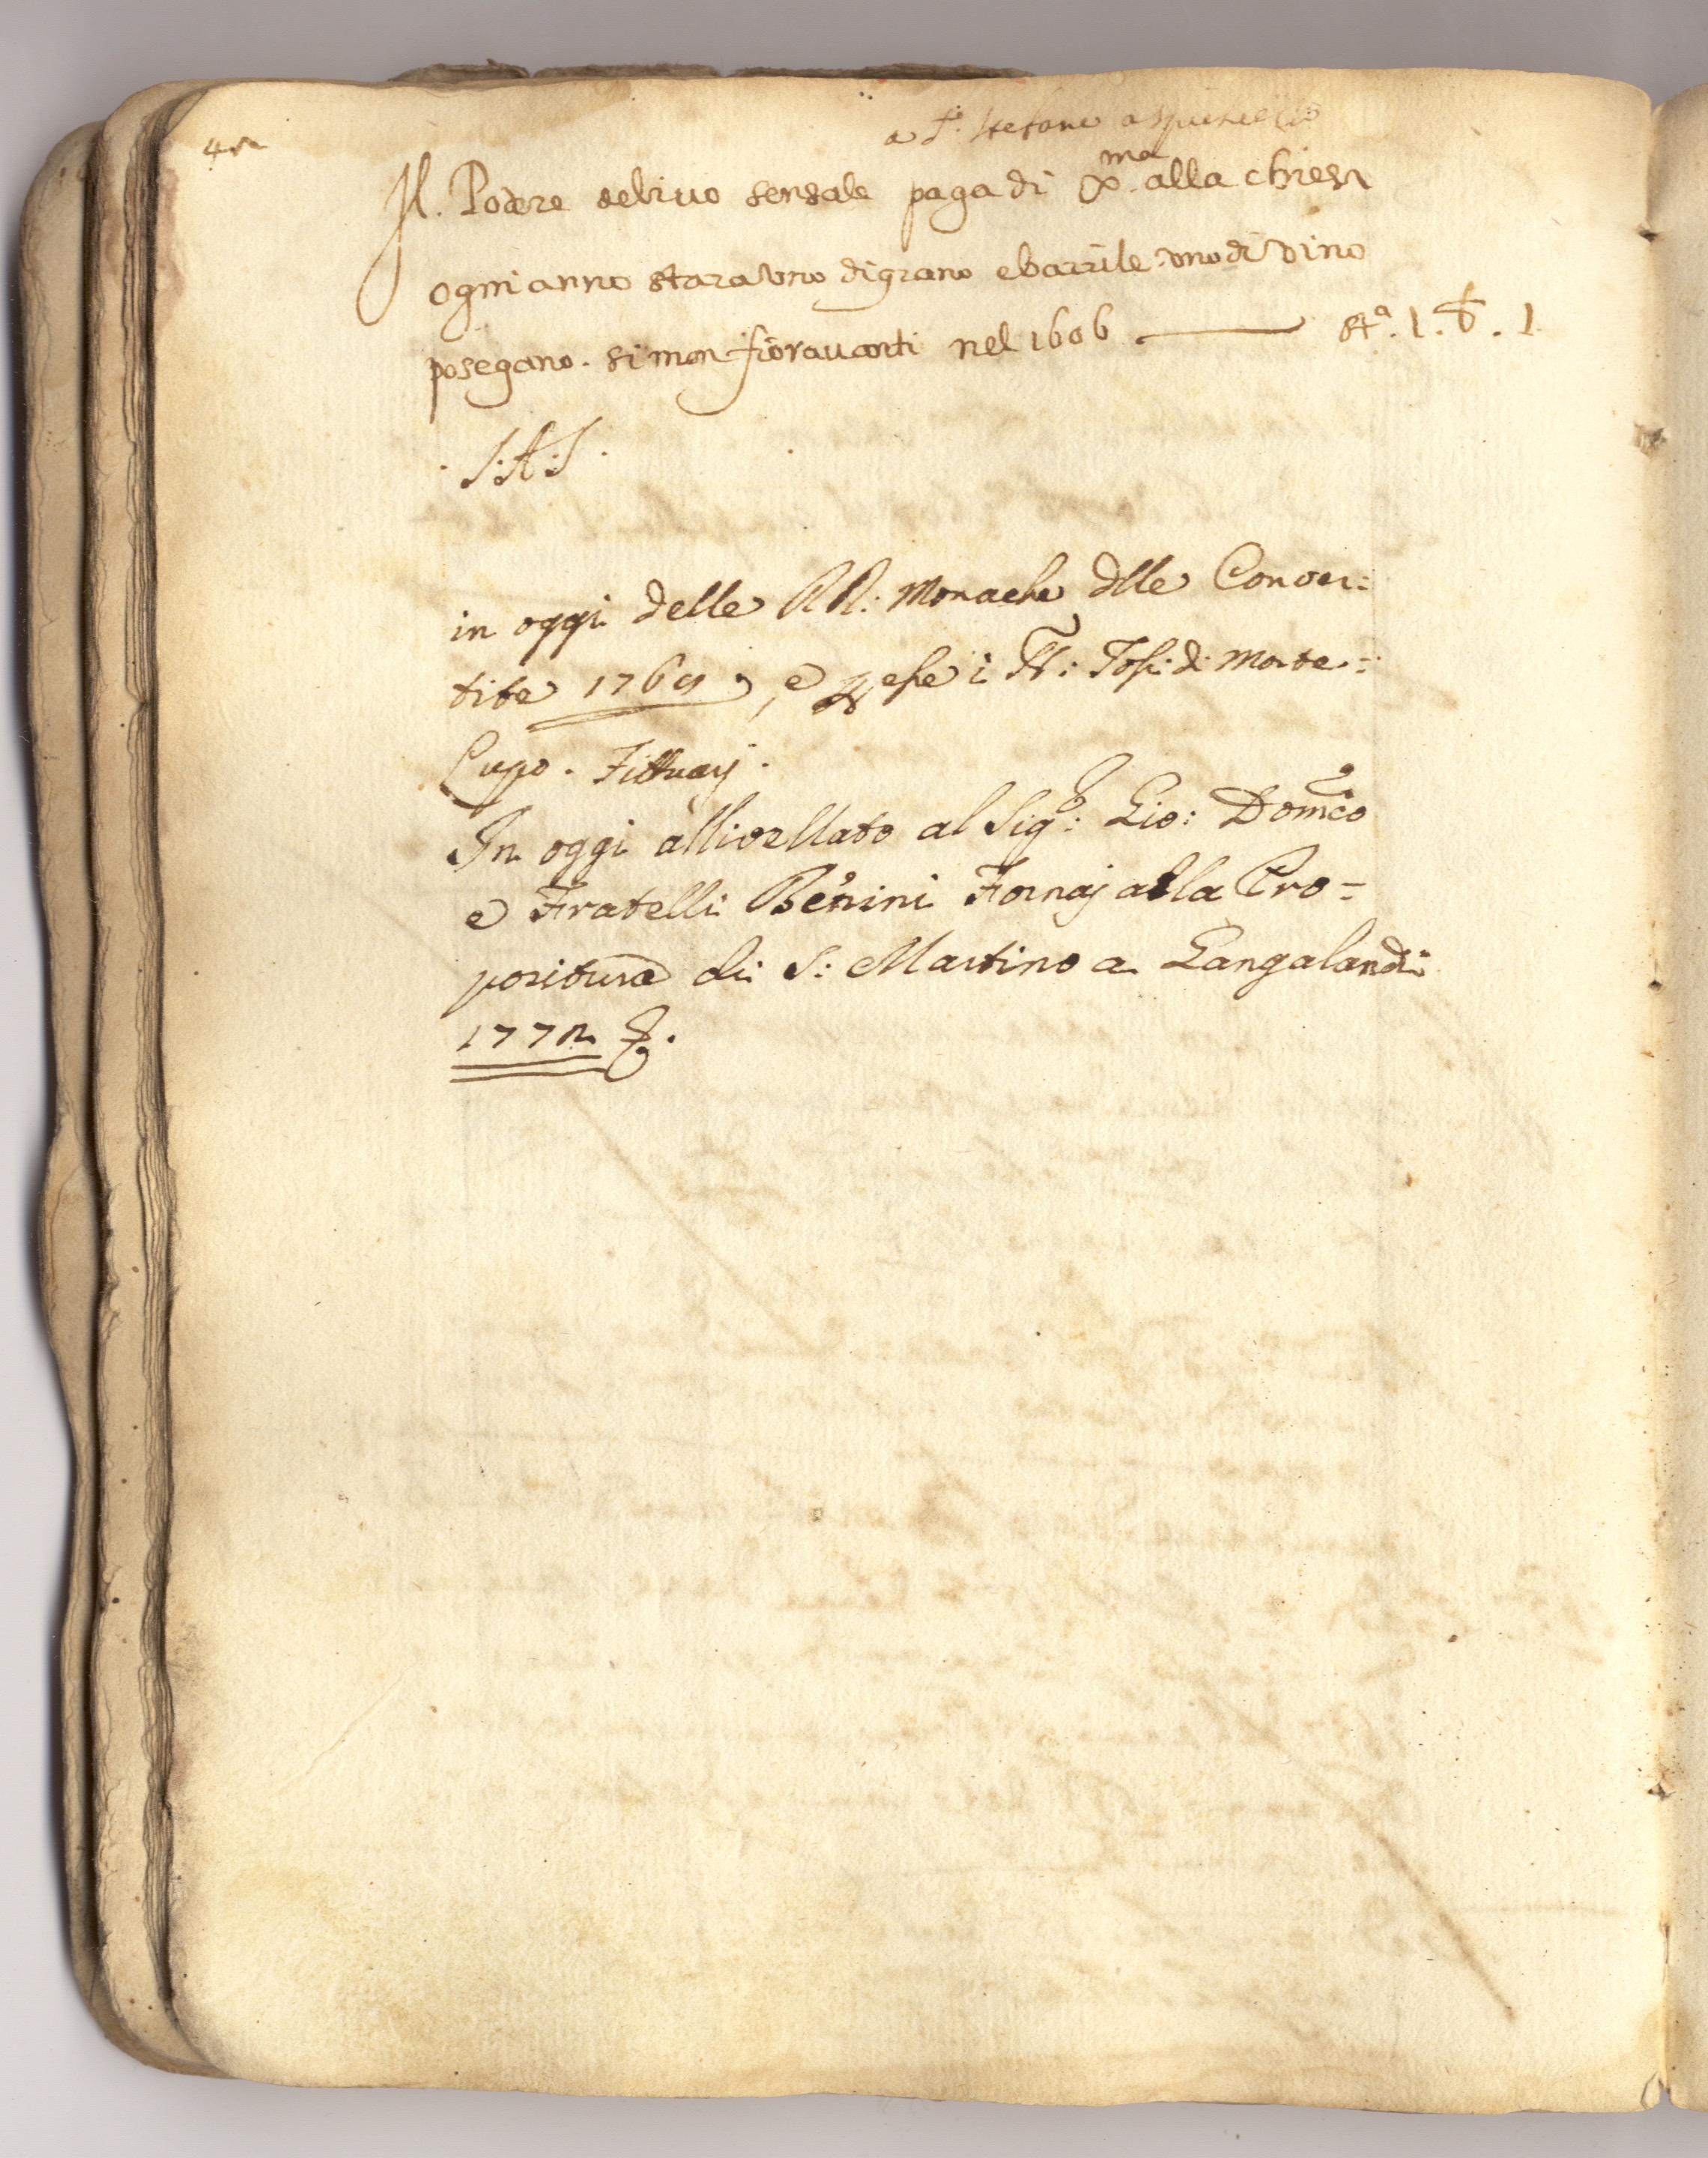 42
a S. Stefano a
Il. Podere del vivo sensale paga di Xma alla chiesa
ogni anno stara vno di grano e barrile vno di vino
posegano. simon fioravanti nel 1606 — sta. 1. b. 1
S:A:S.
in oggi delle RR: Monache dlle Conver:
tite 1769, e p esse i SS: Tosi: di Monte=
Lupo. Fittuarj.
In oggi allivellato al Sigr: Gio: Domco
e Fratelli Benini Fornaj alla Pro=
positura di S: Martino a Gangalandi
1772